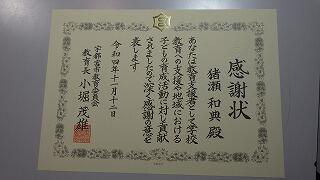 感謝状
猪瀬 和典 殿
あなたは教育支援者として学校
教育への支援や地域における
子どもの育成活動に対して貢献
されましたので深く感謝の意を
表します
令和四年十一月十二日
宇都宮市教育委員会
教育長 小堀 茂雄